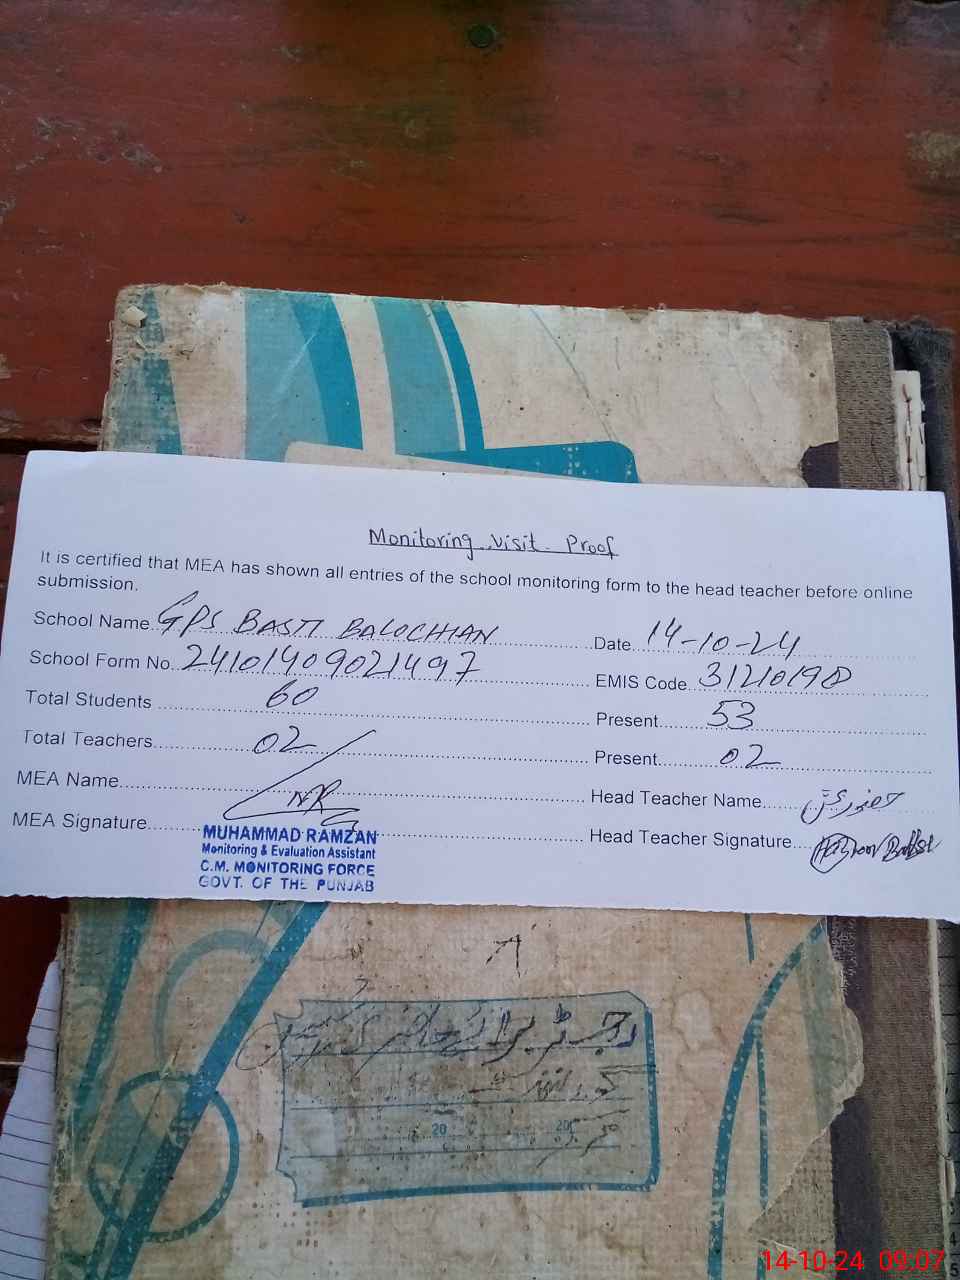 Monitoring visit Proof
It is certified that MEA has shown all entries of the school monitoring form to the head teacher before online
submission.
School Name GPS BASTI BALOCHIAN Date 14-10-24
School Form No. 24101409021497 EMIS Code 31210198
Total Students 60 Present 53
Total Teachers 02 Present 02
MEA Name Head Teacher Name
MEA Signature Head Teacher Signature
MUHAMMAD RAMZAN
Monitoring & Evaluation Assistant
C.M. MONITORING FORCE
GOVT. OF THE PUNJAB
رجسٹر برائے
20 20
14-10-24 09:07